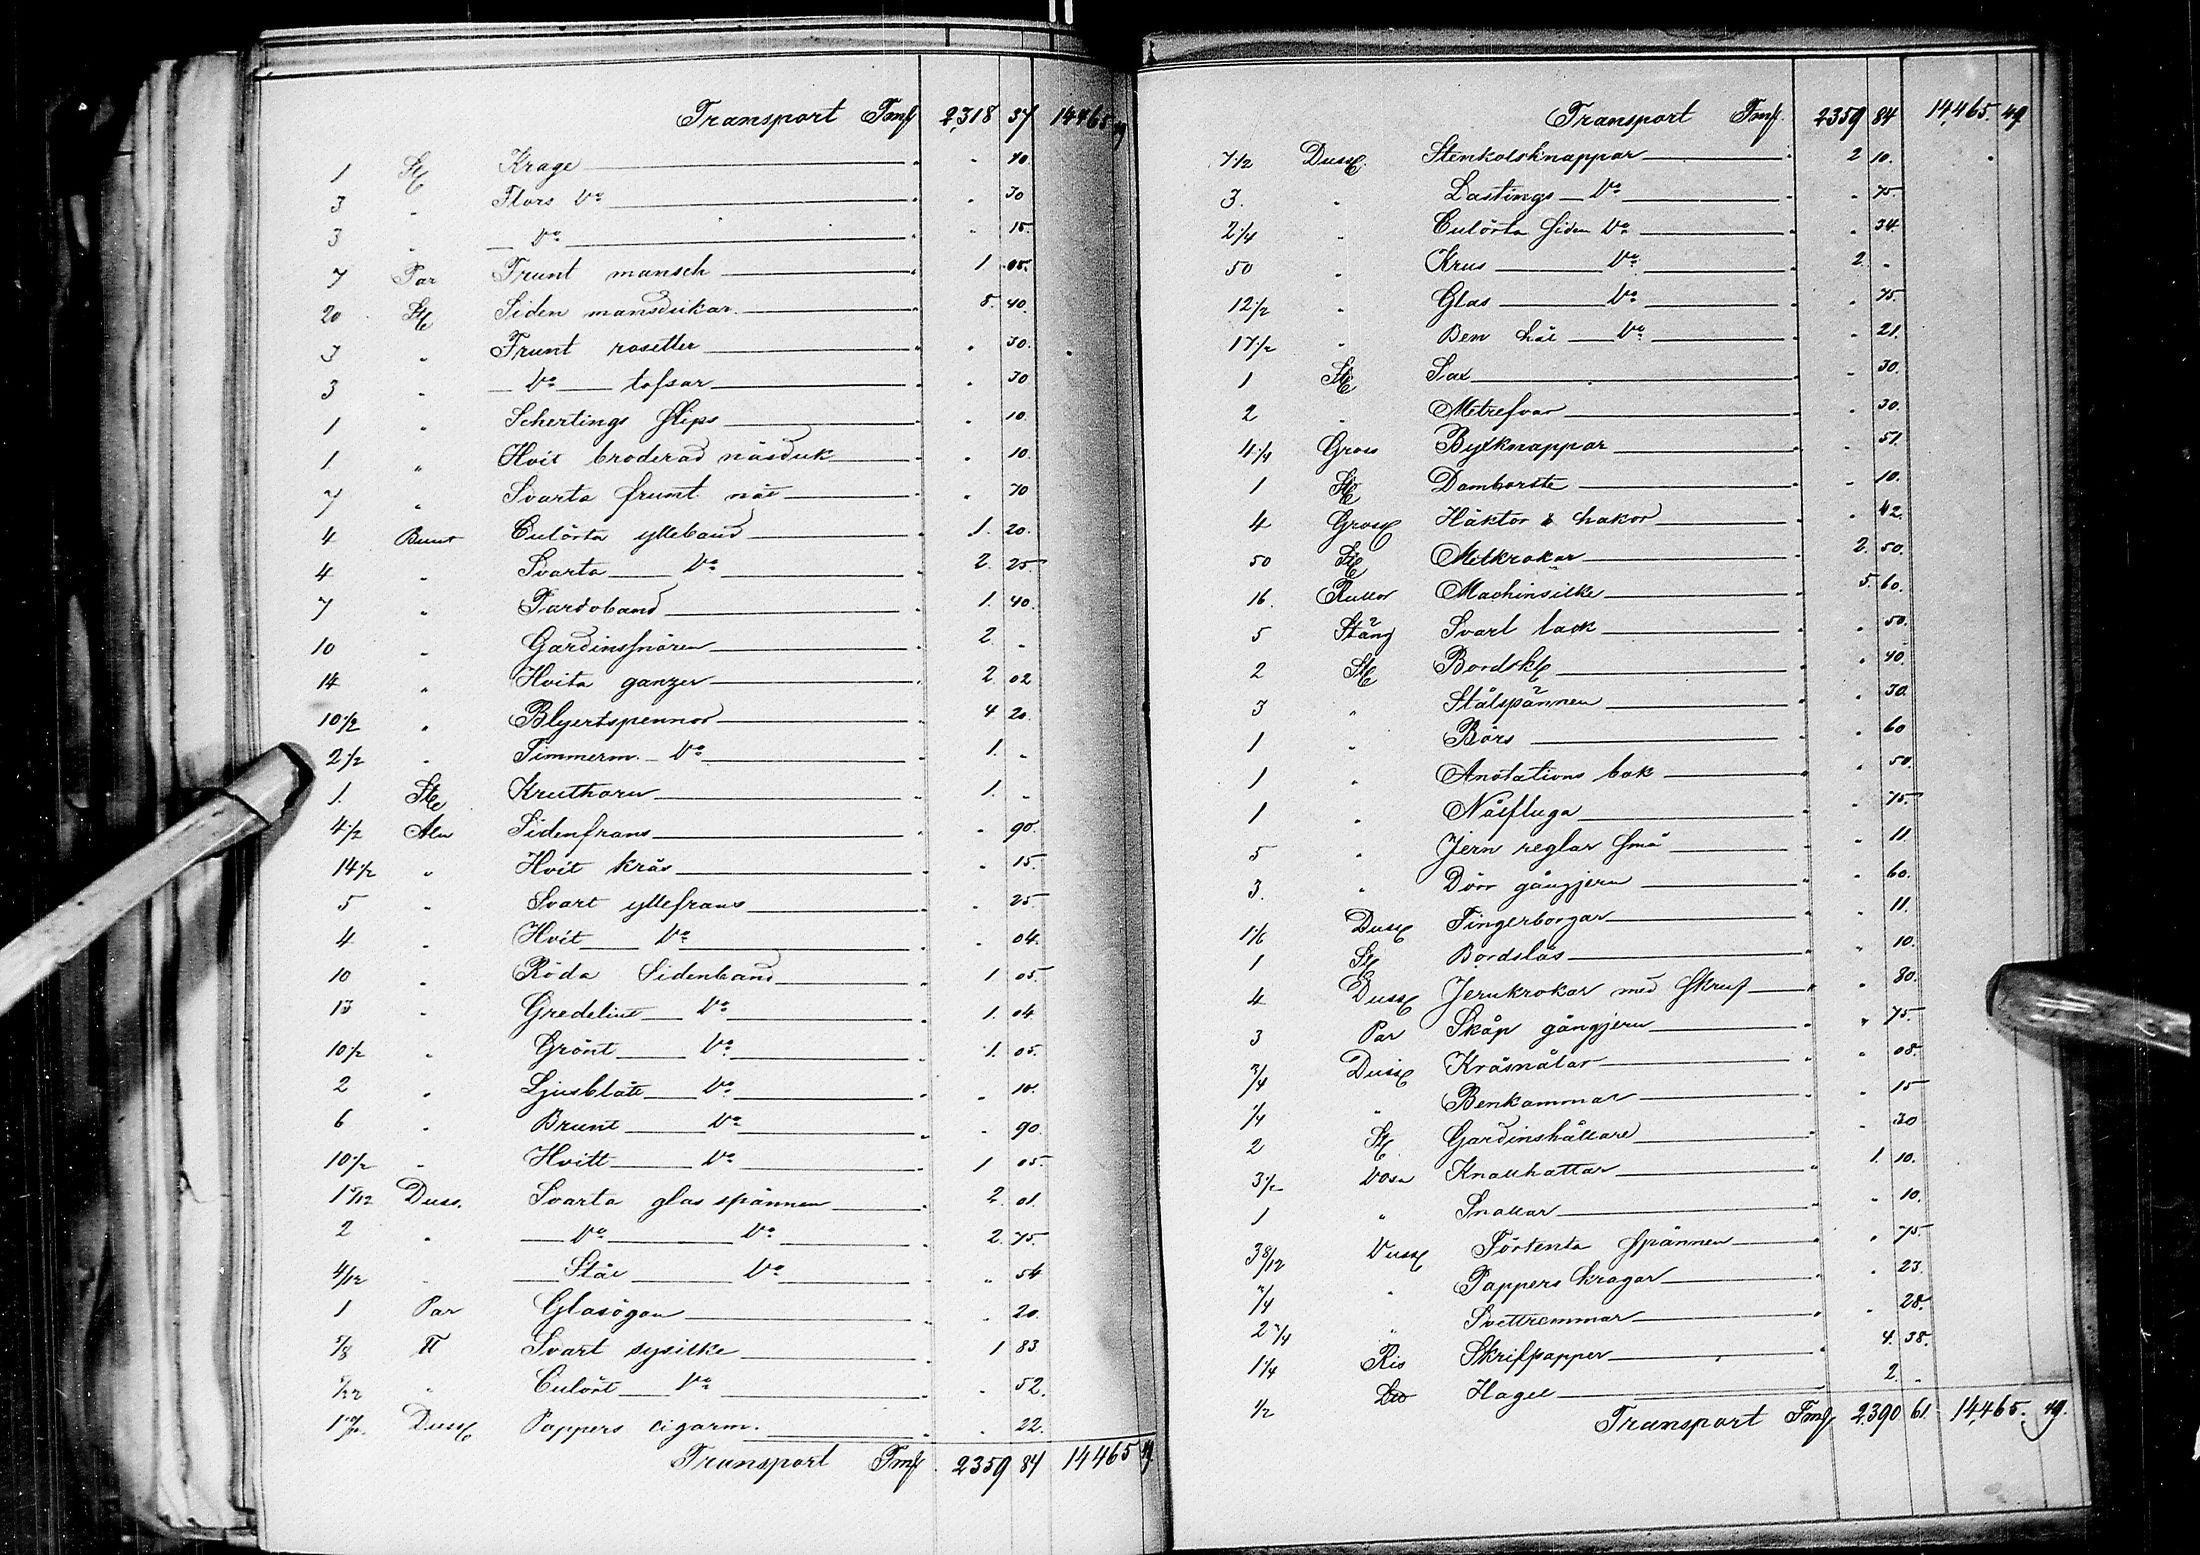 Transport Fmk 2,318 37 14465 49
1 St Krage " 40
3 " Flors Do " 30
3 " Do " 15
7 Par Frunt. mansch 1 05
20 St Siden mansdukar 5 40
3 " Frunt rosetter " 30
3 " Do tofsar " 30
1 " Schertings slips " 10
1 " Hvit broderad näsduk " 10
7 " Svarta frunt. nät " 70
4 Bunt Culörta ylleband 1 20
4 " Svarta Do 2 25
7 " Pardoband 1 40
10 " Gardinsnören 2 "
14 " Hvita ganzer 2 02
10 1/2 " Blyertspennor 4 20
2 1/2 " Timmerm. Do 1 "
1 St Kruthorn 1 "
4 1/2 Aln Sidenfrans " 90
14 1/2 " Hvit krås " 15
5 " Svart yllefrans " 25
4 " Hvit Do " 04
10 " Röda Sidenband 1 05
13 " Gredelint Do 1 04
10 1/2 " Grönt Do 1 05
2 " Ljusblått Do " 10
6 " Brunt Do " 90
10 1/2 " Hvitt Do 1 05
1 5/12 Duss. Svarta glas spännen 2 01
2 " Do Do 2 75
4/12 " Stål Do " 54
1 Par Glasögon " 20
7/8 ℔ Svart sysilke 1 83
" Culört Do " 52
Duss Pappers cigarm. " 22
Transport Fmk 2359 84 14465 49
Transport Fmk 2359 84 14,465 49
7 1/2 Duss Stenkolsknappar 2 10
3 " Lastings Do " 75
2 1/4 " Culörta siden Do " 34
50 " Krus Do 2 "
12 1/2 " Glas Do " 75
17 1/2 " Ben hål Do " 21
1 St Sax " 30
2 " Metrefvar " 30
4 1/4 Gross Byxknappar " 51
1 St Damborste " 10
4 Gross Häktor & hakor " 42
50 St Metkrokar 2 50
16 Rullor Machinsilke 5 60
5 Stång Svart lack " 50
2 St Bordsk " 40
3 " Stålspännen " 30
1 " Börs " 60
1 " Anotations bok " 50
1 " Nålfluga " 75
5 " Jern reglar små " 11
3 " Dörr gångjern " 60
1/6 Duss Fingerborgar " 11
1 St Bordslås " 10
4 Duss Jernkrokar med skruf " 80
3 Par Skåp gångjern " 75
3/4 Duss Kråsnålar " 08
1/4 " Benkammar " 15
2 St Gardinshållare " 30
3 1/2 Dosa Knallhattar 1 10
1 " Snallar " 10
3 8/12 Duss Förtenta spännen " 75
3/4 " Pappers kragar " 23
2 3/4 " Svettremmar " 28
1 1/4 Ris Skrifpapper 4 38
1/2 Hagel 2 "
Transport Fmk 2,390 61 14,465 49